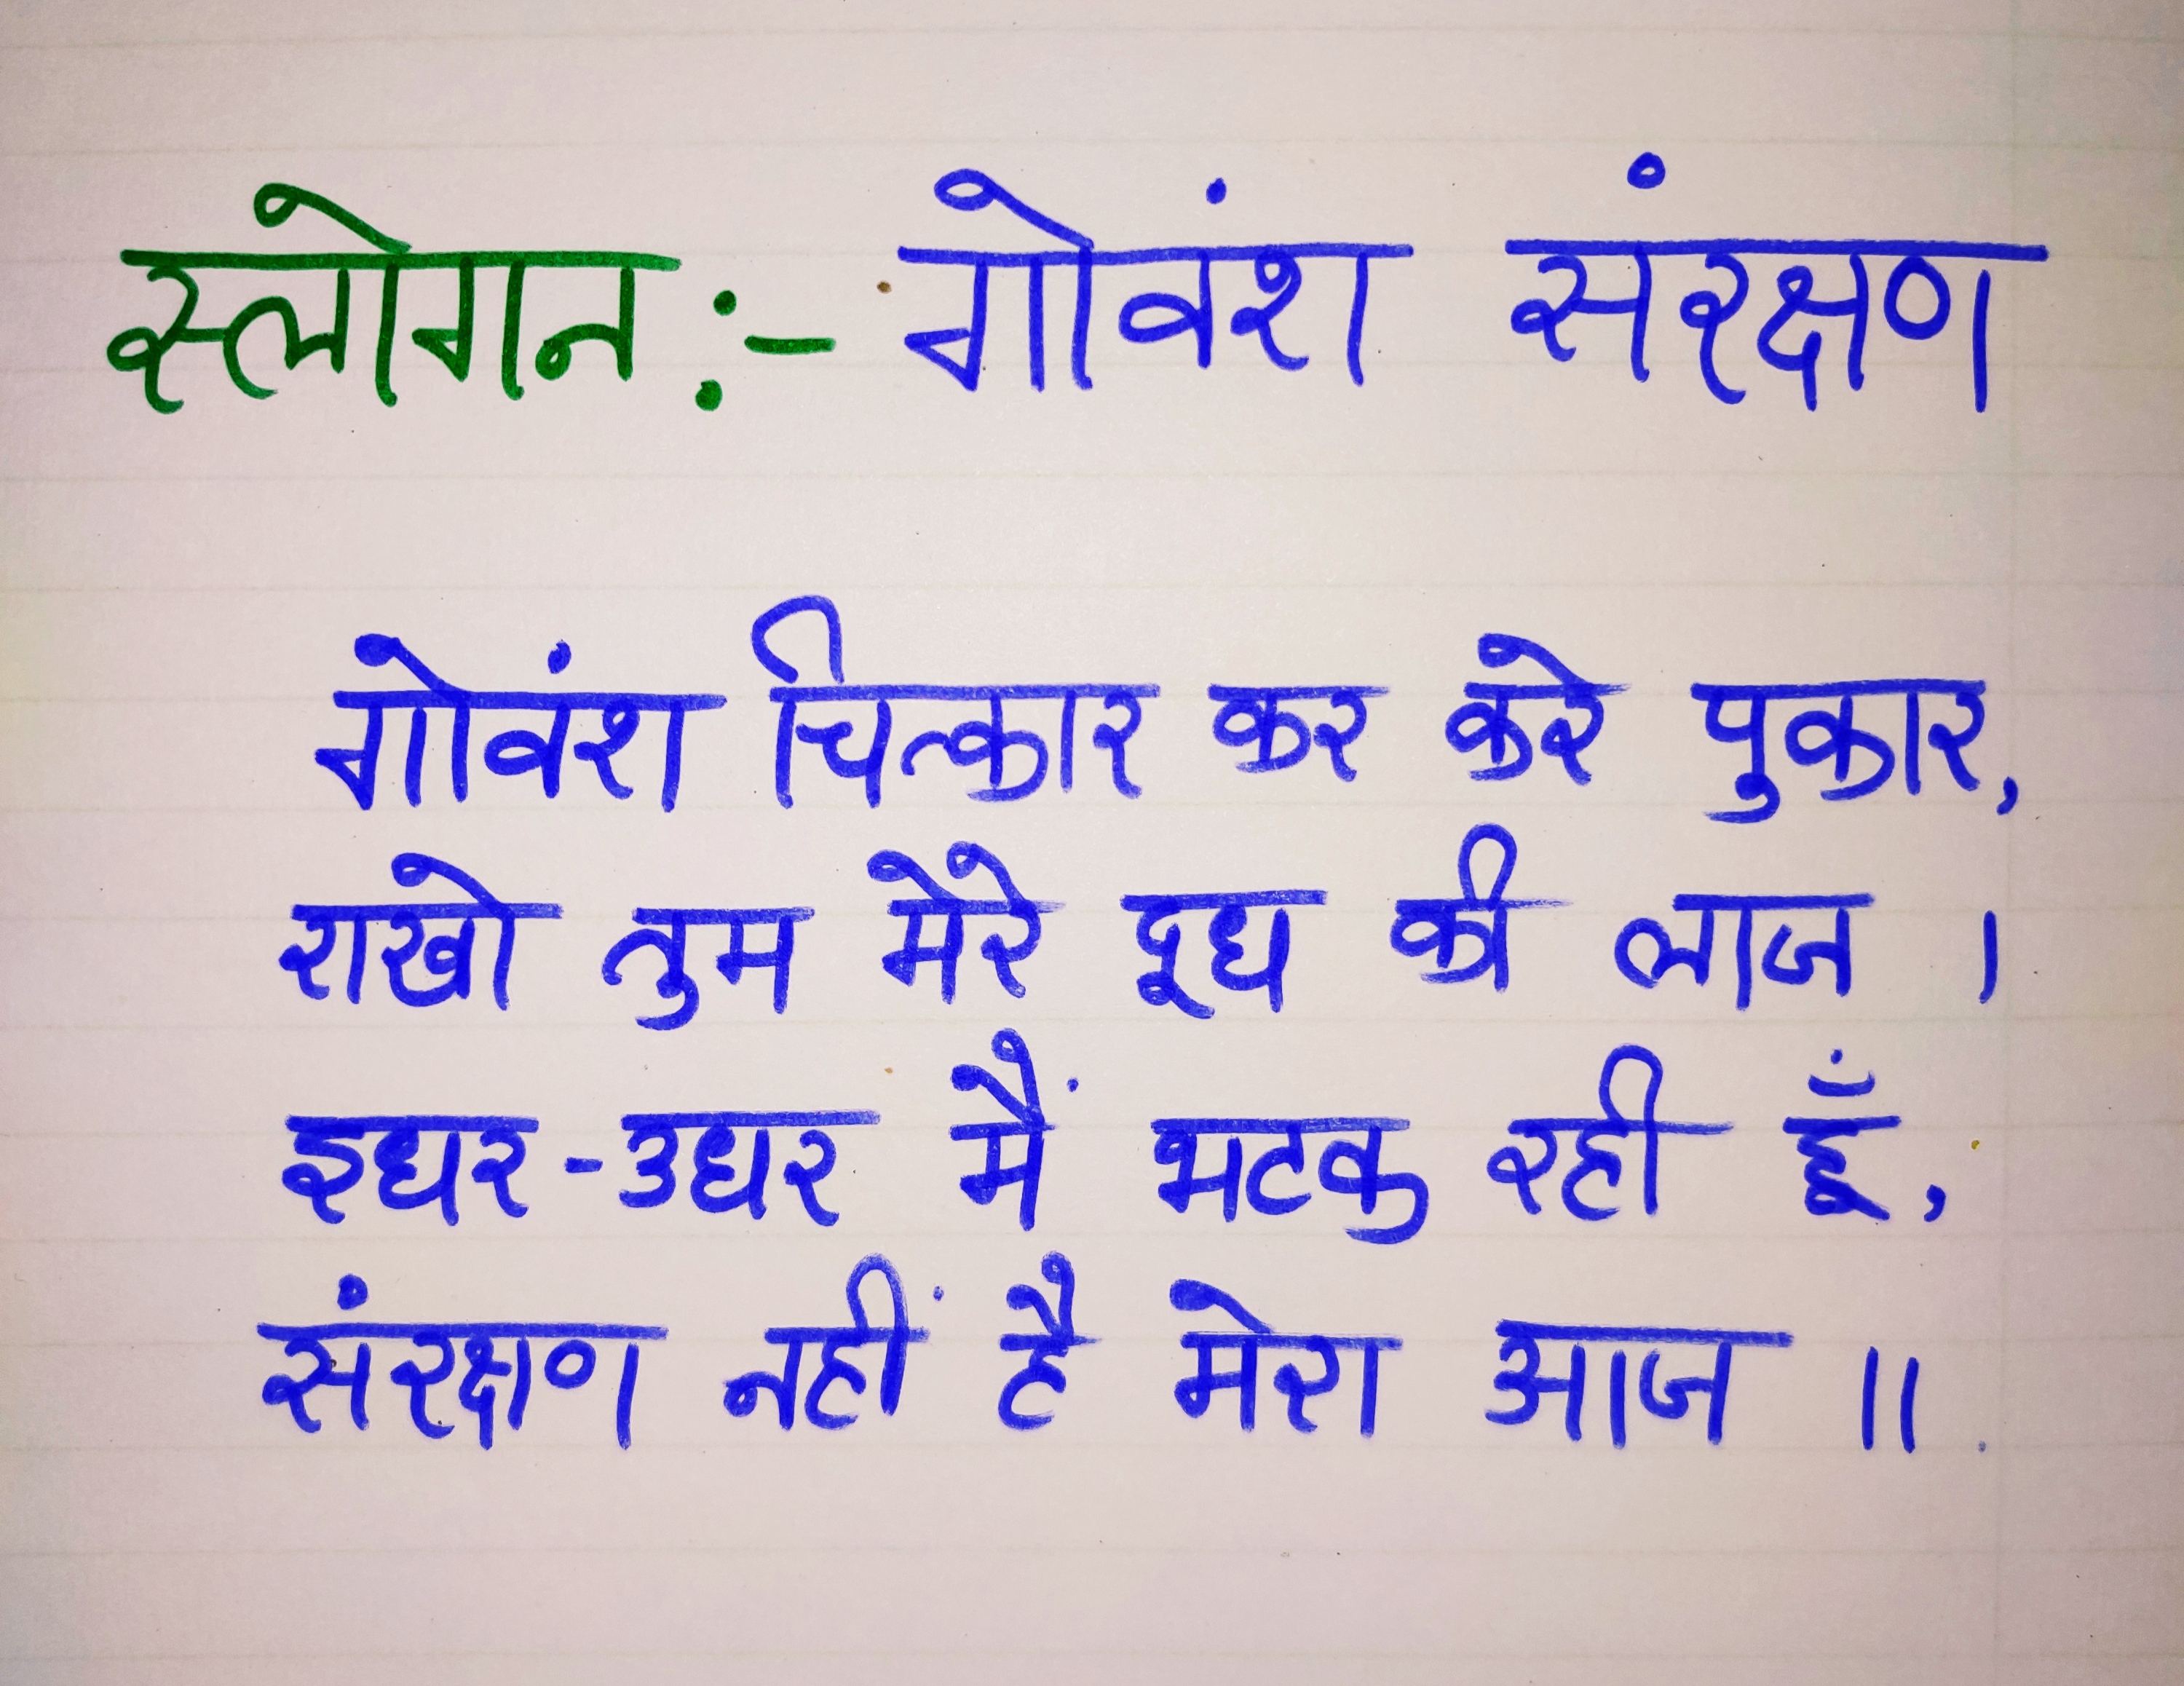 स्लोगन :- गोवंश संरक्षण
गोवंश चित्कार कर करे पुकार,
राखो तुम मेरे दूध की लाज ।
इधर-उधर मैं भटक रही हूँ,
संरक्षण नहीं है मेरा आज ॥